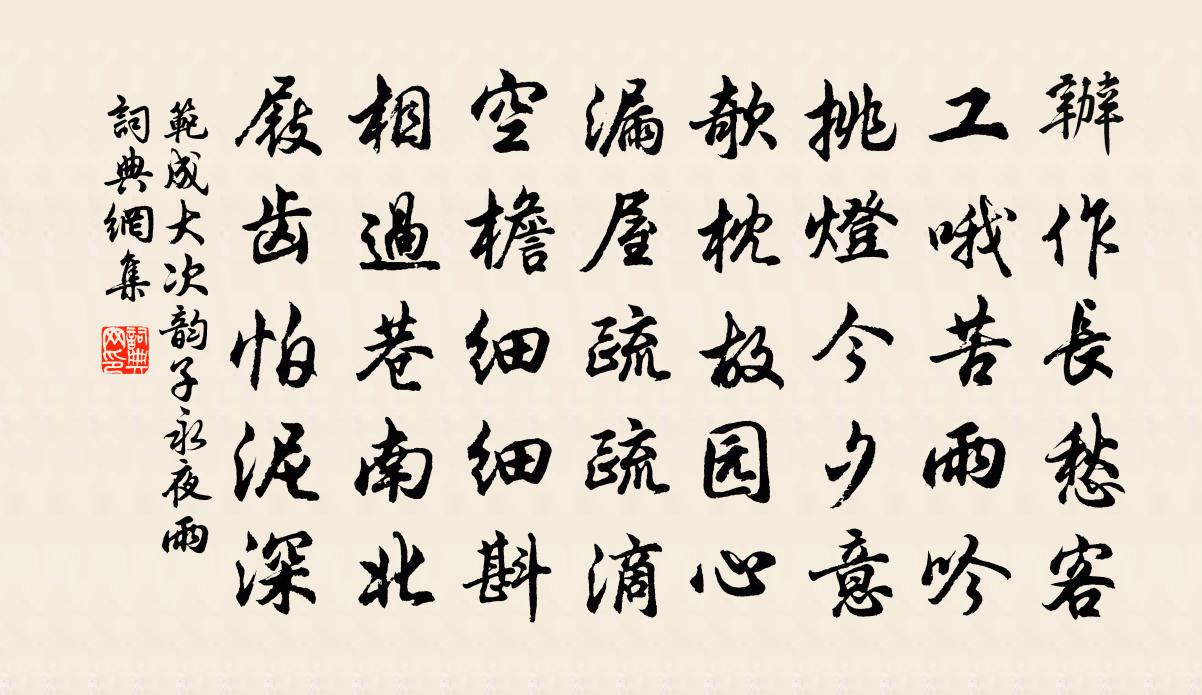 辦作長愁客
工哦苦雨吟
挑燈今夕意
欹枕故园心
漏屋疏疏滴
空檐细细斟
相過巷南北
屐齿怕泥深
範成大次韵子永夜雨
詞典網集
詞典网印